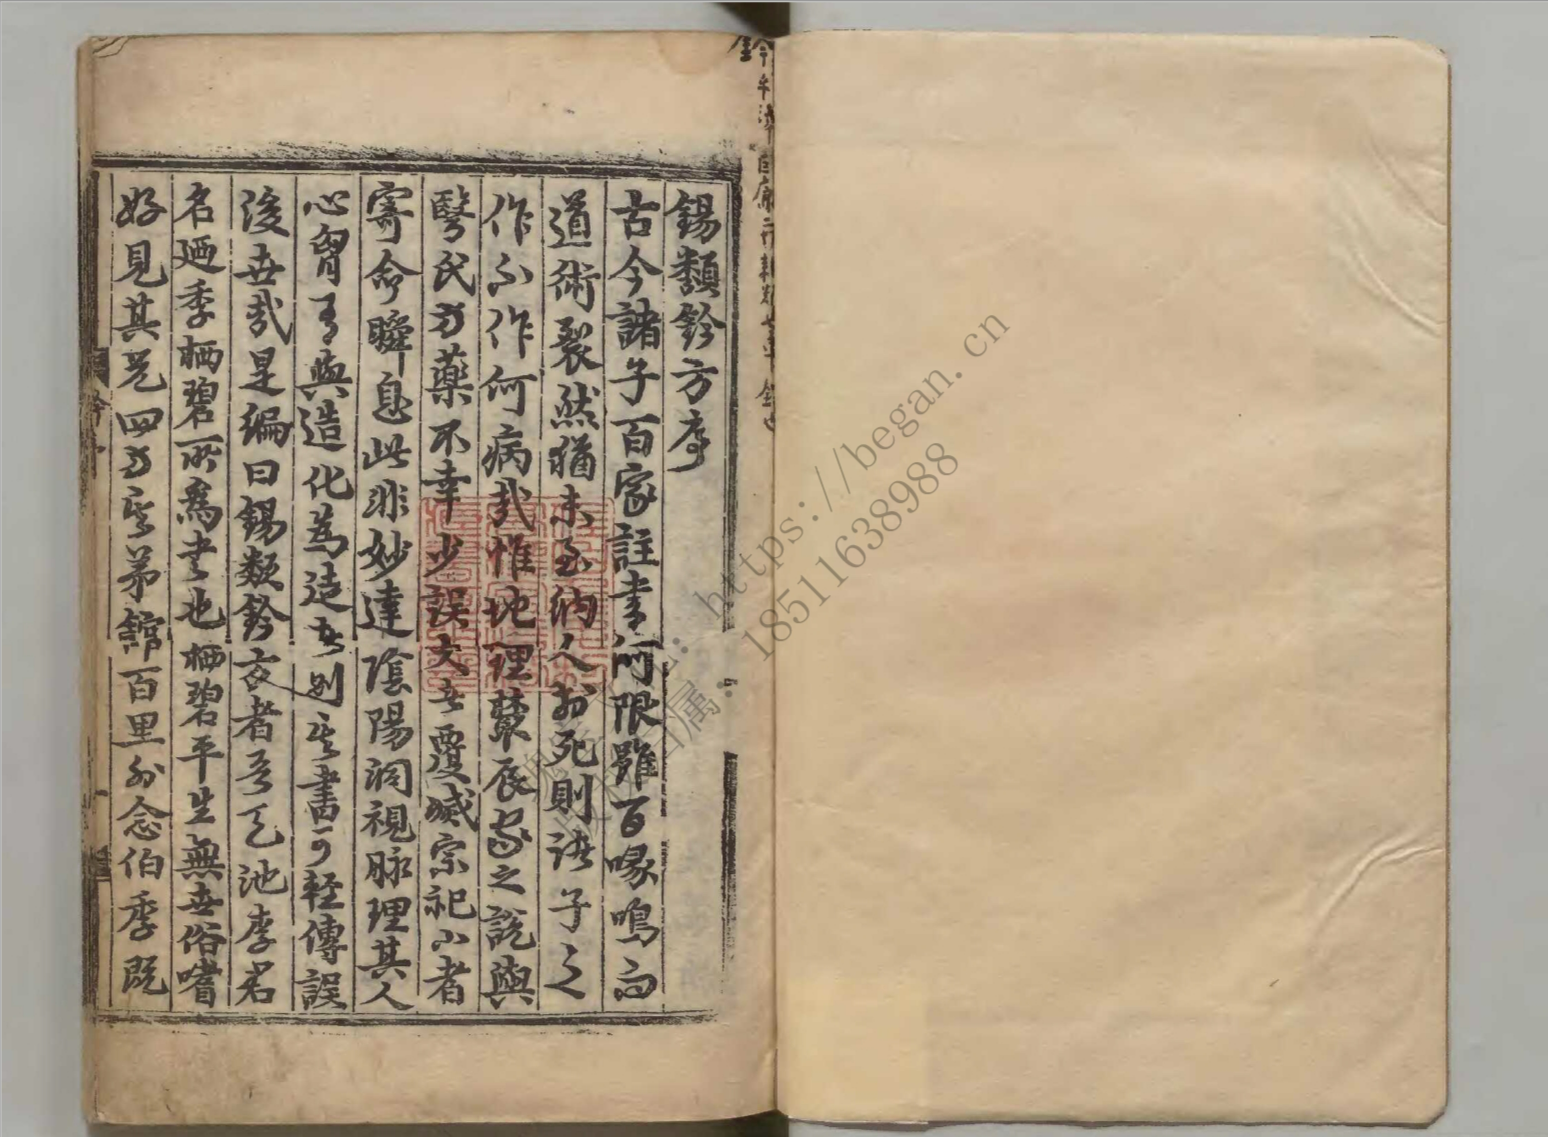 錫類鈐方序
古今諸子百家註書何限雖百喙鳴而
道術裂然猶未至納人於死則諸子之
作不作何病哉惟地理葬辰家之說與
醫氏方藥不幸少誤大者覆滅宗祀小者
寄命瞬息此非妙達陰陽洞視脉理其人
心胷有與造化為徒者則其書可輕傳誤
後世哉是編曰錫類鈐方者吾天池李君
名廼季栖碧所為書也栖碧平生無世俗嗜
好見其兄四方其弟館百里外念伯季既
https://began.cn
18511638988